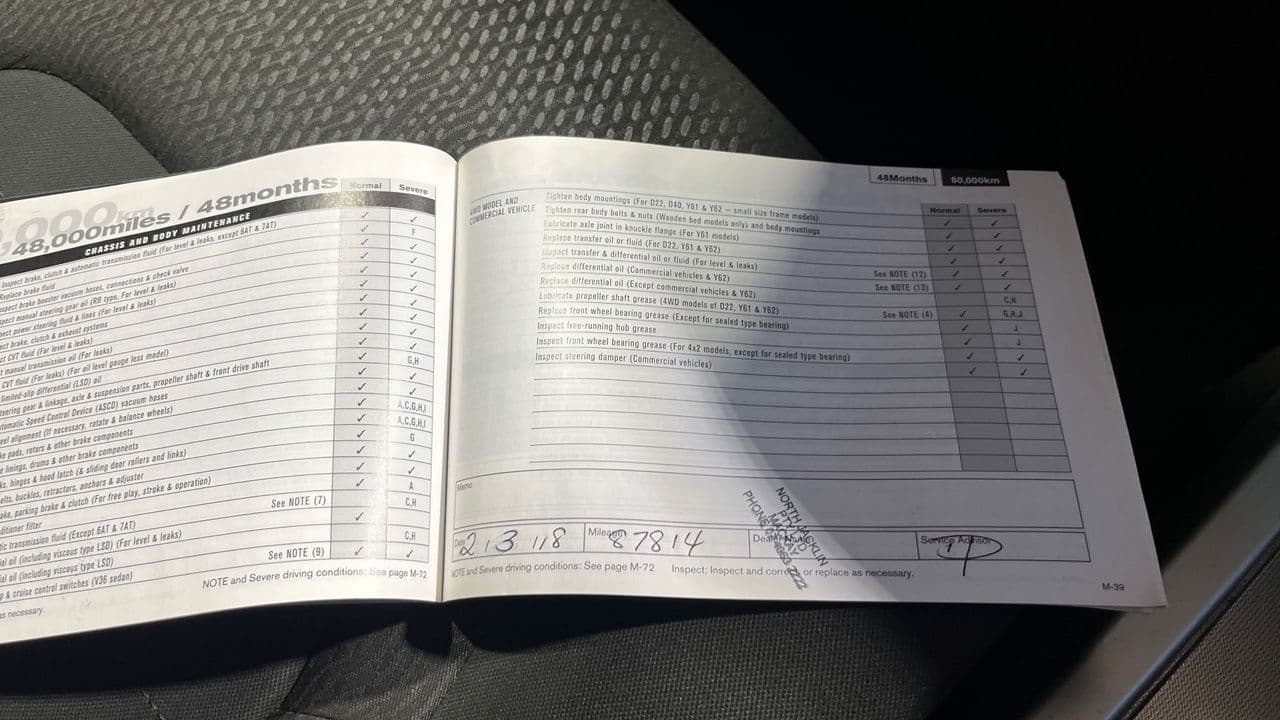 48,000miles / 48months
Normal
Severe
CHASSIS AND BODY MAINTENANCE
Inspect brake, clutch & automatic transmission fluid (For level & leaks, except 6AT & 7AT)
✓ ✓
Replace brake fluid
✓ F
brake booster vacuum hoses, connections & check valve
✓ ✓
manual steering gear oil (RB type, For level & leaks)
✓ ✓
power steering fluid & lines (For level & leaks)
✓ ✓
brake, clutch & exhaust systems
CVT fluid (For level & leaks)
manual transmission oil (For leaks)
CVT fluid (For leaks) (For oil level gauge less model)
limited-slip differential (LSD) oil
gear & linkage, axle & suspension parts, propeller shaft & front drive shaft
G,H
Speed Control Device (ASCD) vacuum hoses
alignment (If necessary, rotate & balance wheels)
A,C,G,H,I
pads, rotors & other brake components
A,C,G,H,I
linings, drums & other brake components
G
hinges & hood latch (& sliding door rollers and links)
buckles, retractors, anchors & adjuster
parking brake & clutch (For free play, stroke & operation)
A
filter
See NOTE (7)
C,H
fluid (Except 6AT & 7AT)
oil (including viscous type LSD) (For level & leaks)
C,H
oil (including viscous type LSD)
See NOTE (9) ✓ ✓
& cruise control switches (V36 sedan)
NOTE and Severe driving conditions: See page M-72
as necessary.
48Months
80,000km
Normal Severe
4WD MODEL AND
COMMERCIAL VEHICLE
Tighten body mountings (For D22, D40, Y61 & Y62 – small size frame models)
✓ ✓
Tighten rear body bolts & nuts (Wooden bed models only) and body mountings
✓ ✓
Lubricate axle joint in knuckle flange (For Y61 models)
✓ ✓
Replace transfer oil or fluid (For D22, Y61 & Y62)
✓ ✓
Inspect transfer & differential oil or fluid (For level & leaks)
Replace differential oil (Commercial vehicles & Y62)
See NOTE (12) ✓ ✓
Replace differential oil (Except commercial vehicles & Y62)
See NOTE (13) ✓ ✓
Lubricate propeller shaft grease (4WD models of D22, Y61 & Y62)
C,H
Replace front wheel bearing grease (Except for sealed type bearing)
See NOTE (4) ✓ G,H,J
Inspect free-running hub grease
✓ J
Inspect front wheel bearing grease (For 4x2 models, except for sealed type bearing)
✓ J
Inspect steering damper (Commercial vehicles)
✓ ✓
✓ ✓
Memo
NORTH JACKLIN
PTY LTD
Mileage 87814
Service Advisor
NOTE and Severe driving conditions: See page M-72 Inspect: Inspect and correct or replace as necessary.
M-39